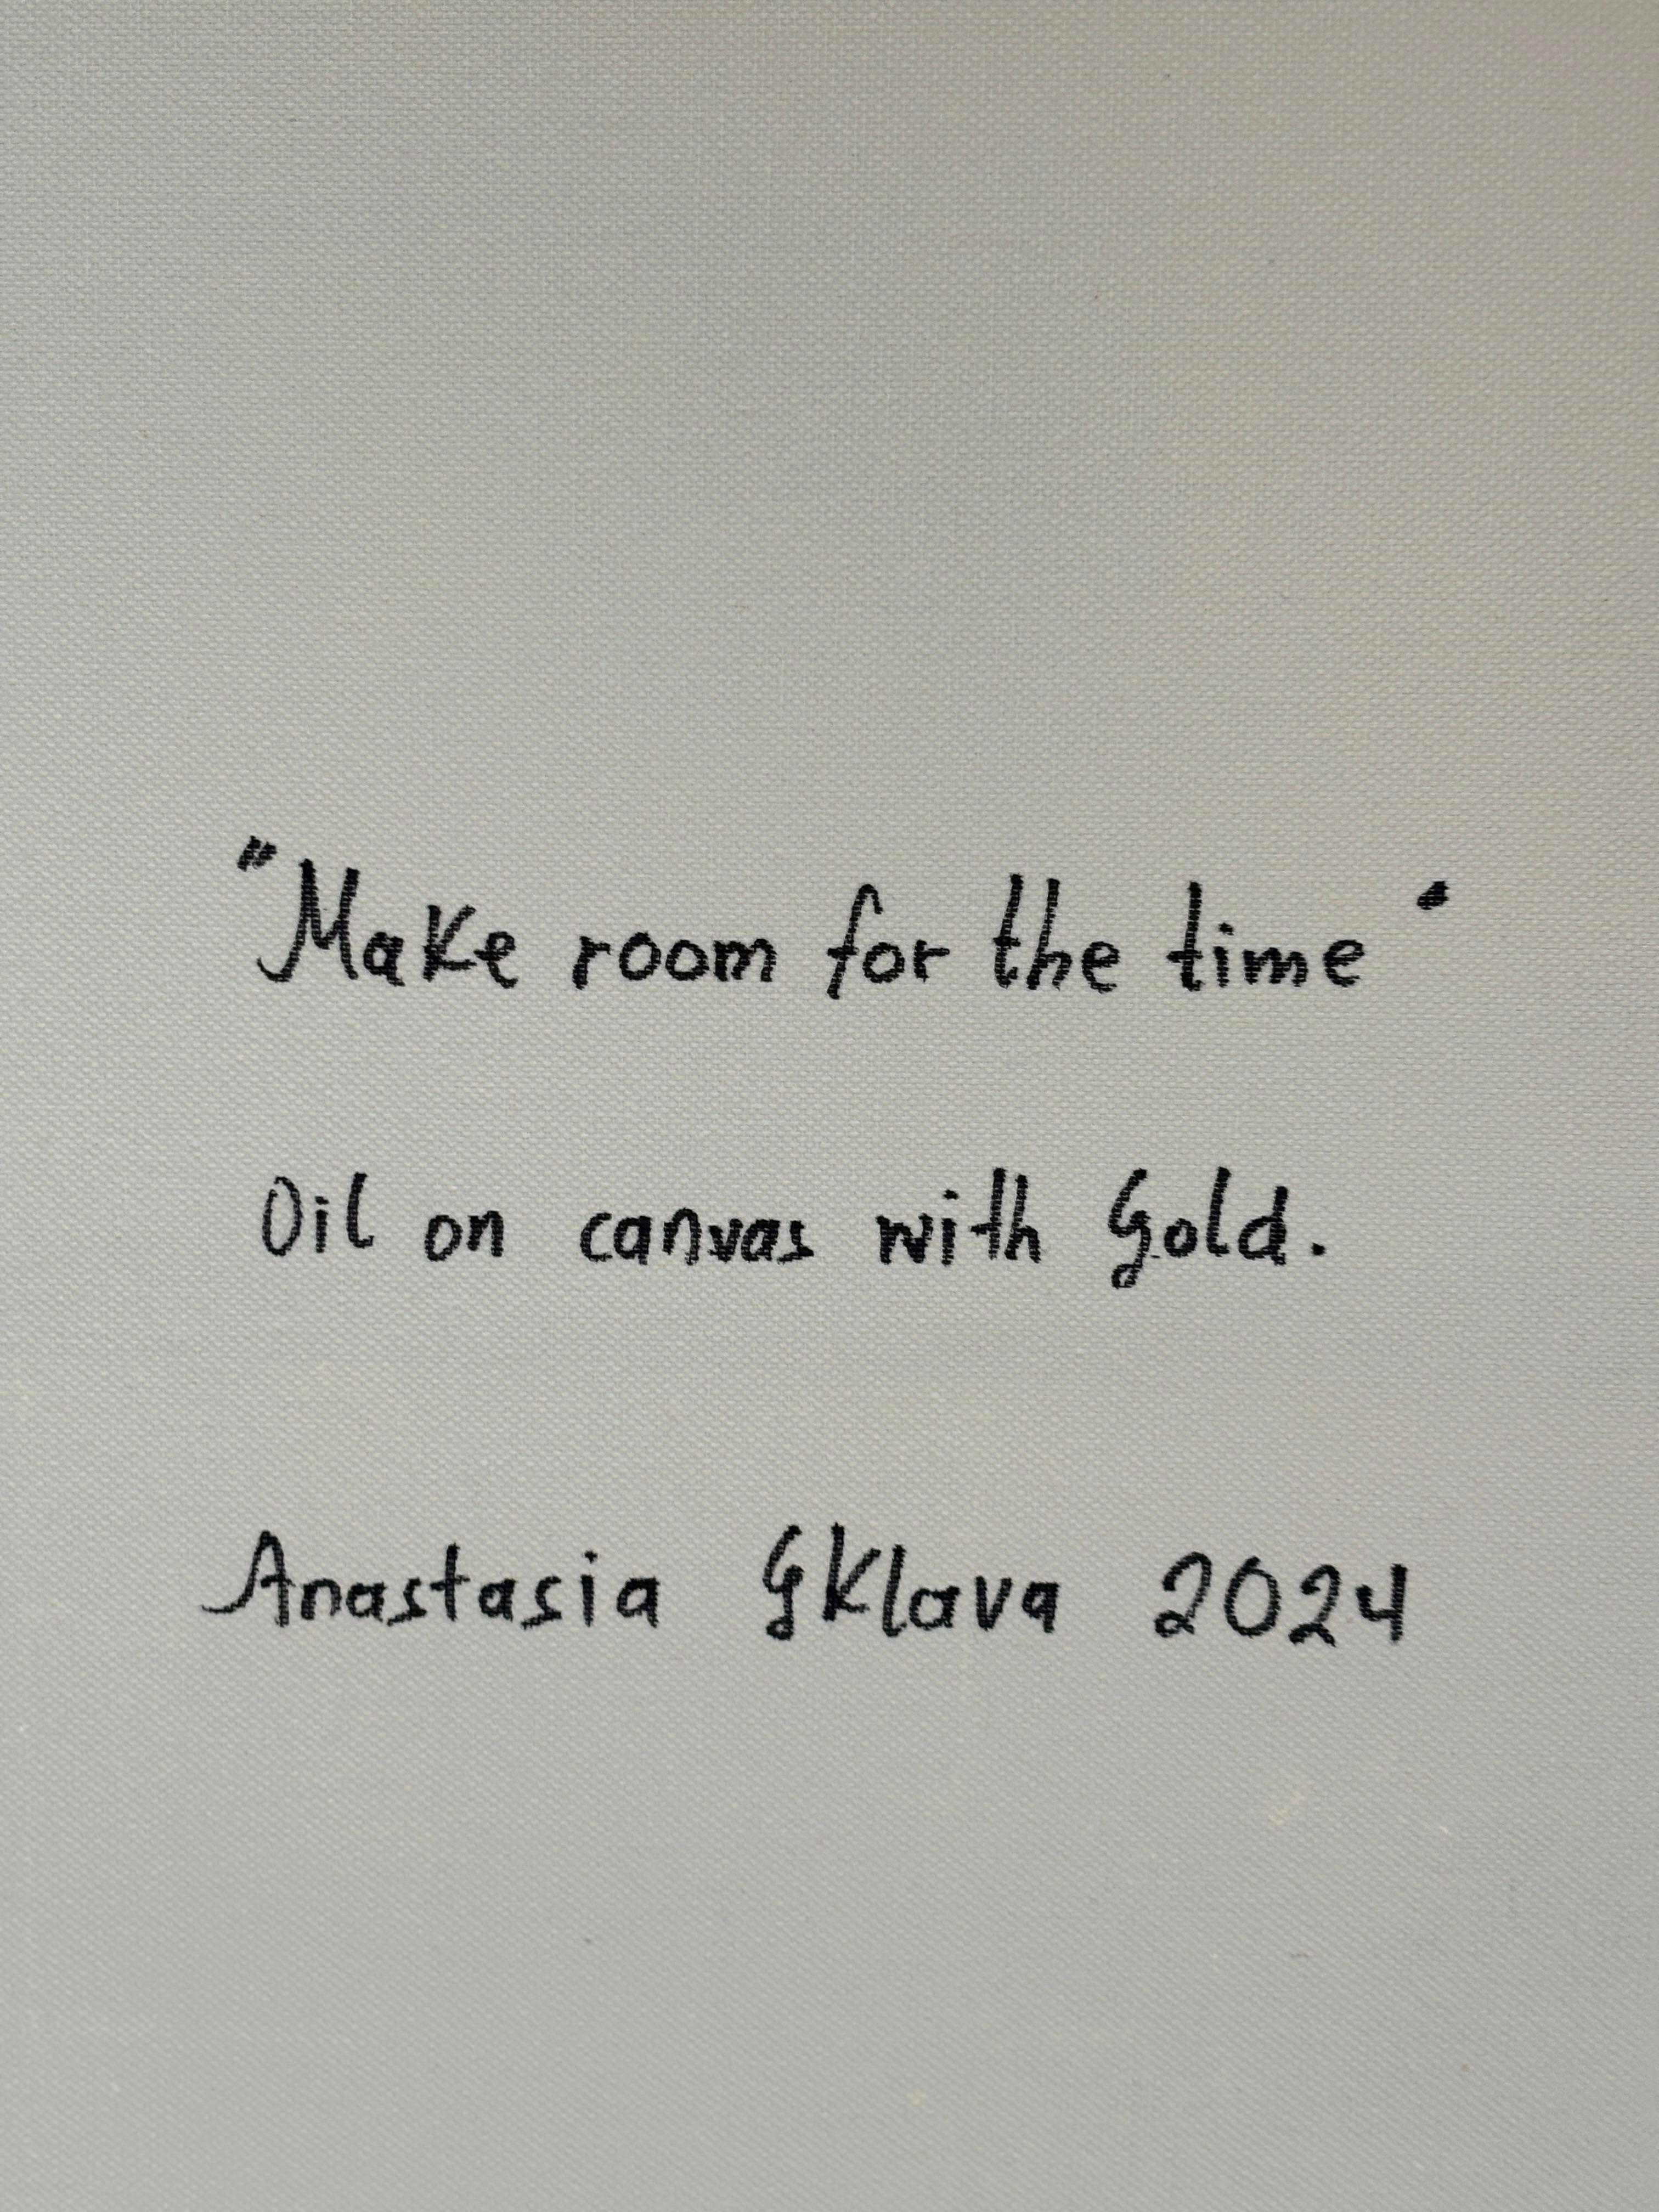 "Make room for the time"
Oil on canvas with Gold.
Anastasia GKlava 2024